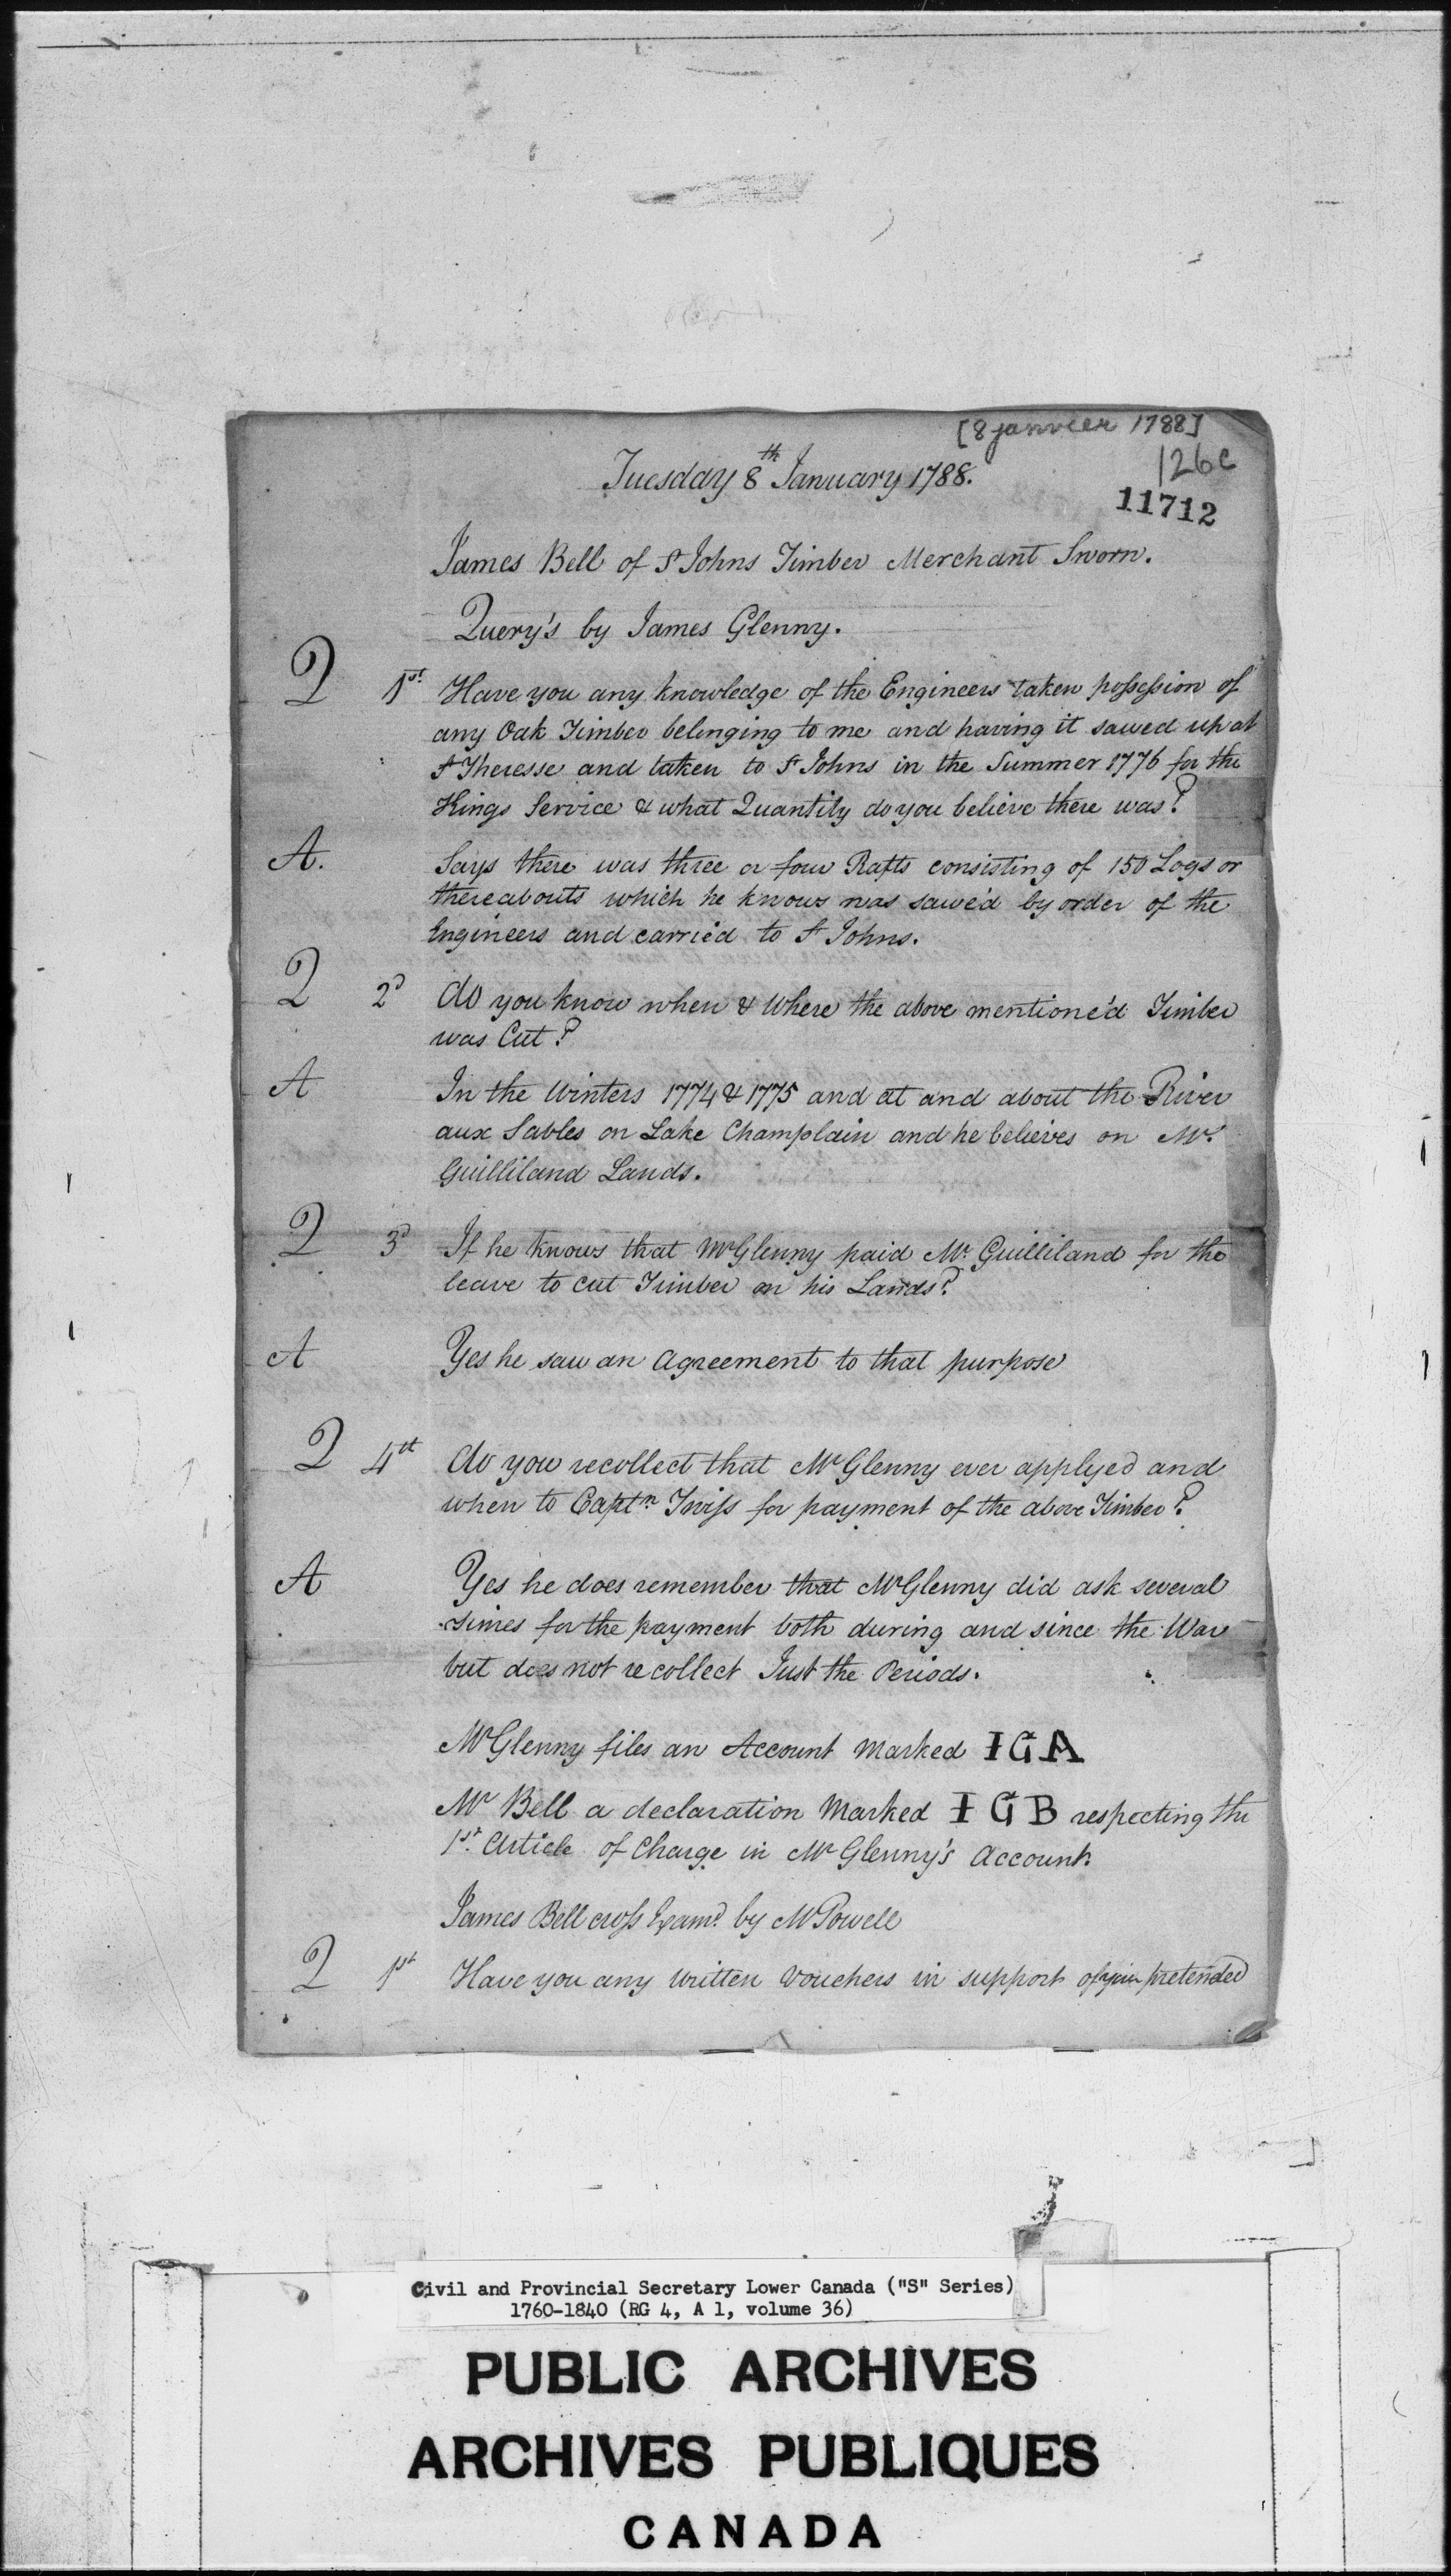 [8 janvier 1788]
126c
Tuesday 8th January 1788.
11712
James Bell of St Johns Timber Merchant Sworn.
Query's by James Glenny.
Q 1st Have you any knowledge of the Engineers taken possession of
any Oak Timber belonging to me and having it sawed up at
St Theresse and taken to St Johns in the Summer 1776 for the
Kings Service & what Quantity do you believe there was?
A. Says there was three or four Rafts consisting of 150 Logs or
thereabouts which he knows was sawe'd by order of the
Engineers and carrie'd to St Johns.
Q 2d do you know when & Where the above mentione'd Timber
was Cut?
A In the Winters 1774 & 1775 and at and about the River
aux Sables on Lake Champlain and he believes on Mr.
Guilliland Lands.
Q 3d If he knows that Mr Glenny paid Mr. Guilliland for the
leave to cut Timber on his Lands?
A Yes he saw an Agreement to that purpose
Q 4th do you recollect that Mr Glenny ever applyed and
when to Captn Twiss for payment of the above Timber?
A Yes he does remember that Mr Glenny did ask several
times for the payment both during and since the War
but does not recollect Just the Periods.
Mr Glenny files an Account Marked I G A
Mr Bell a declaration Marked I G B respecting the
1st. Article of Charge in Mr Glenny's Account.
James Bell cross Examd. by Mr Powell
Q 1st Have you any written Vouchers in support of your pretended
Civil and Provincial Secretary Lower Canada ("S" Series)
1760-1840 (RG 4, A 1, volume 36)
PUBLIC ARCHIVES
ARCHIVES PUBLIQUES
CANADA